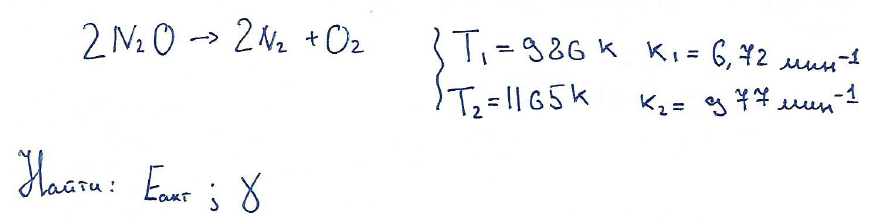 2N₂O → 2N₂ + O₂
T₁ = 986 K K₁ = 6,72 мин⁻¹
T₂ = 1165 K K₂ = 977 мин⁻¹
Найти: Eакт ; γ